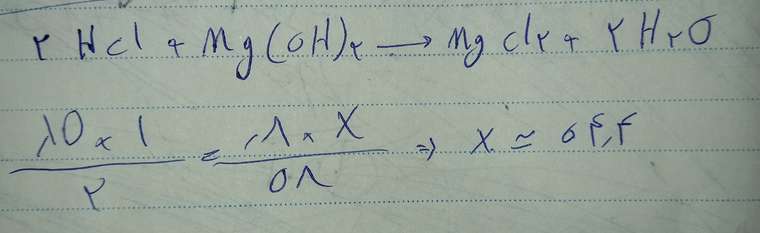 ۲ HCl + Mg(OH)۲ → MgCl۲ + ۲ H۲O
۱٫۵ × ۱ / ۲ = ٫۸ × X / ۵۸ ⇒ X ≃ ۵۴٫۴